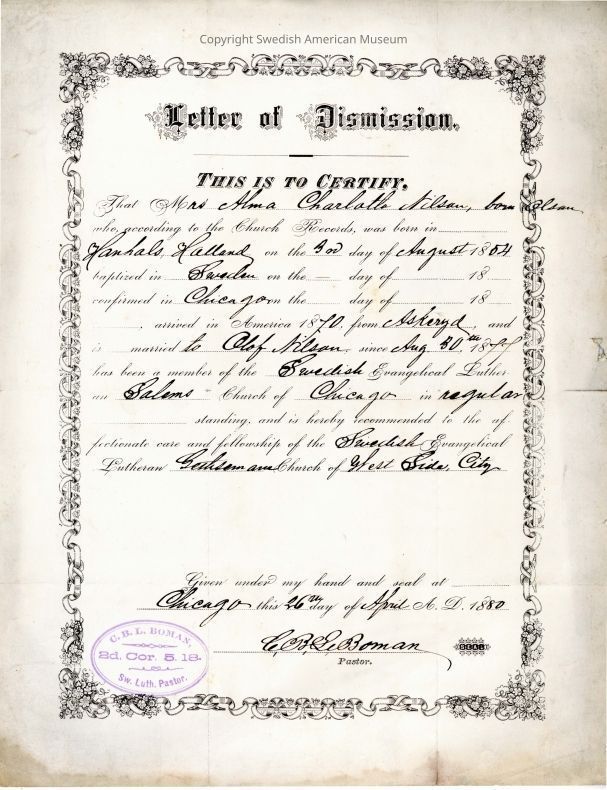 Copyright Swedish American Museum
Letter of Dismission.
THIS IS TO CERTIFY,
That Mrs Alma Charlotte Nilson, born Olson
who, according to the Church Records, was born in
Hanhals, Halland on the 3rd day of August 1854
baptized in Sweden on the — day of 18
confirmed in Chicago on the day of 18
, arrived in America 1870, from Askeryd, and
is married to Olof Nilson, since Aug. 30th, 1877
has been a member of the Swedish Evangelical Luther-
an Salems Church of Chicago in regular
standing, and is hereby recommended to the af-
fectionate care and fellowship of the Swedish Evangelical
Lutheran Gethsemane Church of West Side, City
Given under my hand and seal at
Chicago this 26th day of April A. D. 1880
C. B. L. Boman
SEAL
Pastor.
C. B. L. BOMAN,
2d. Cor. 5. 18.
Sw. Luth. Pastor.